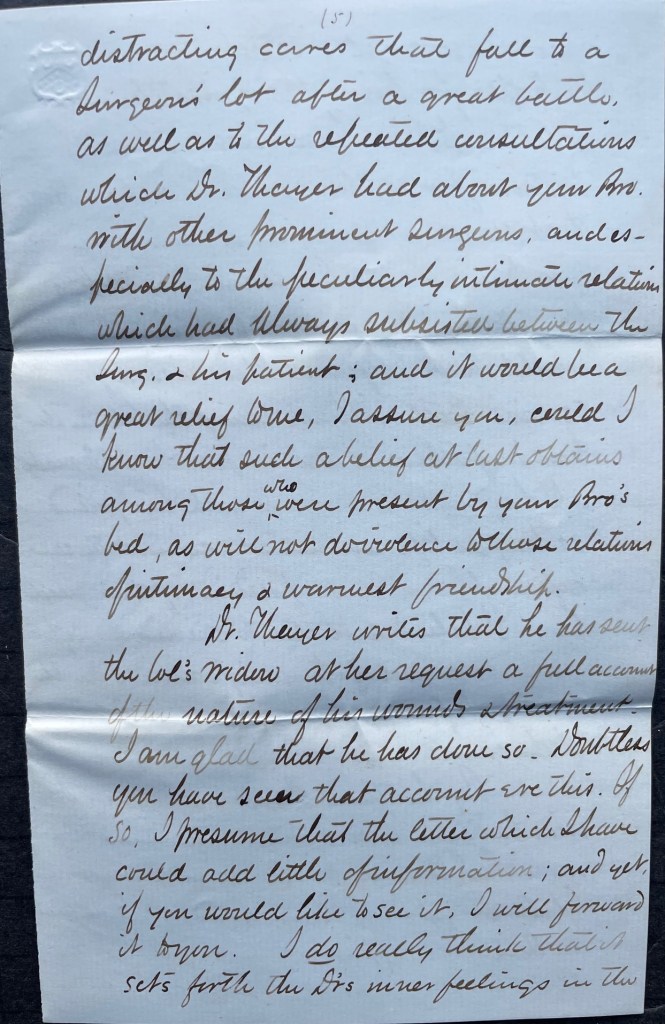 (5)
distracting cares that fall to a
Surgeon's lot after a great battle,
as well as to the repeated consultations
which Dr. Thayer had about your Bro.
with other prominent surgeons, and es-
pecially to the peculiarly intimate relations
which had always subsisted between the
Surg. & his patient; and it would be a
great relief to me, I assure you, could I
know that such a belief at last obtains
among those who were present by your Bro's
bed, as will not do violence to those relations
of intimacy & warmest friendship.
Dr. Thayer writes that he has sent
the Col's widow at her request a full account
of the nature of his wounds & treatment.
I am glad that he has done so. Doubtless
you have seen that account ere this. If
so, I presume that the letter which I have
could add little of information; and yet,
if you would like to see it, I will forward
it to you. I do really think that it
sets forth the Dr's inner feelings in the